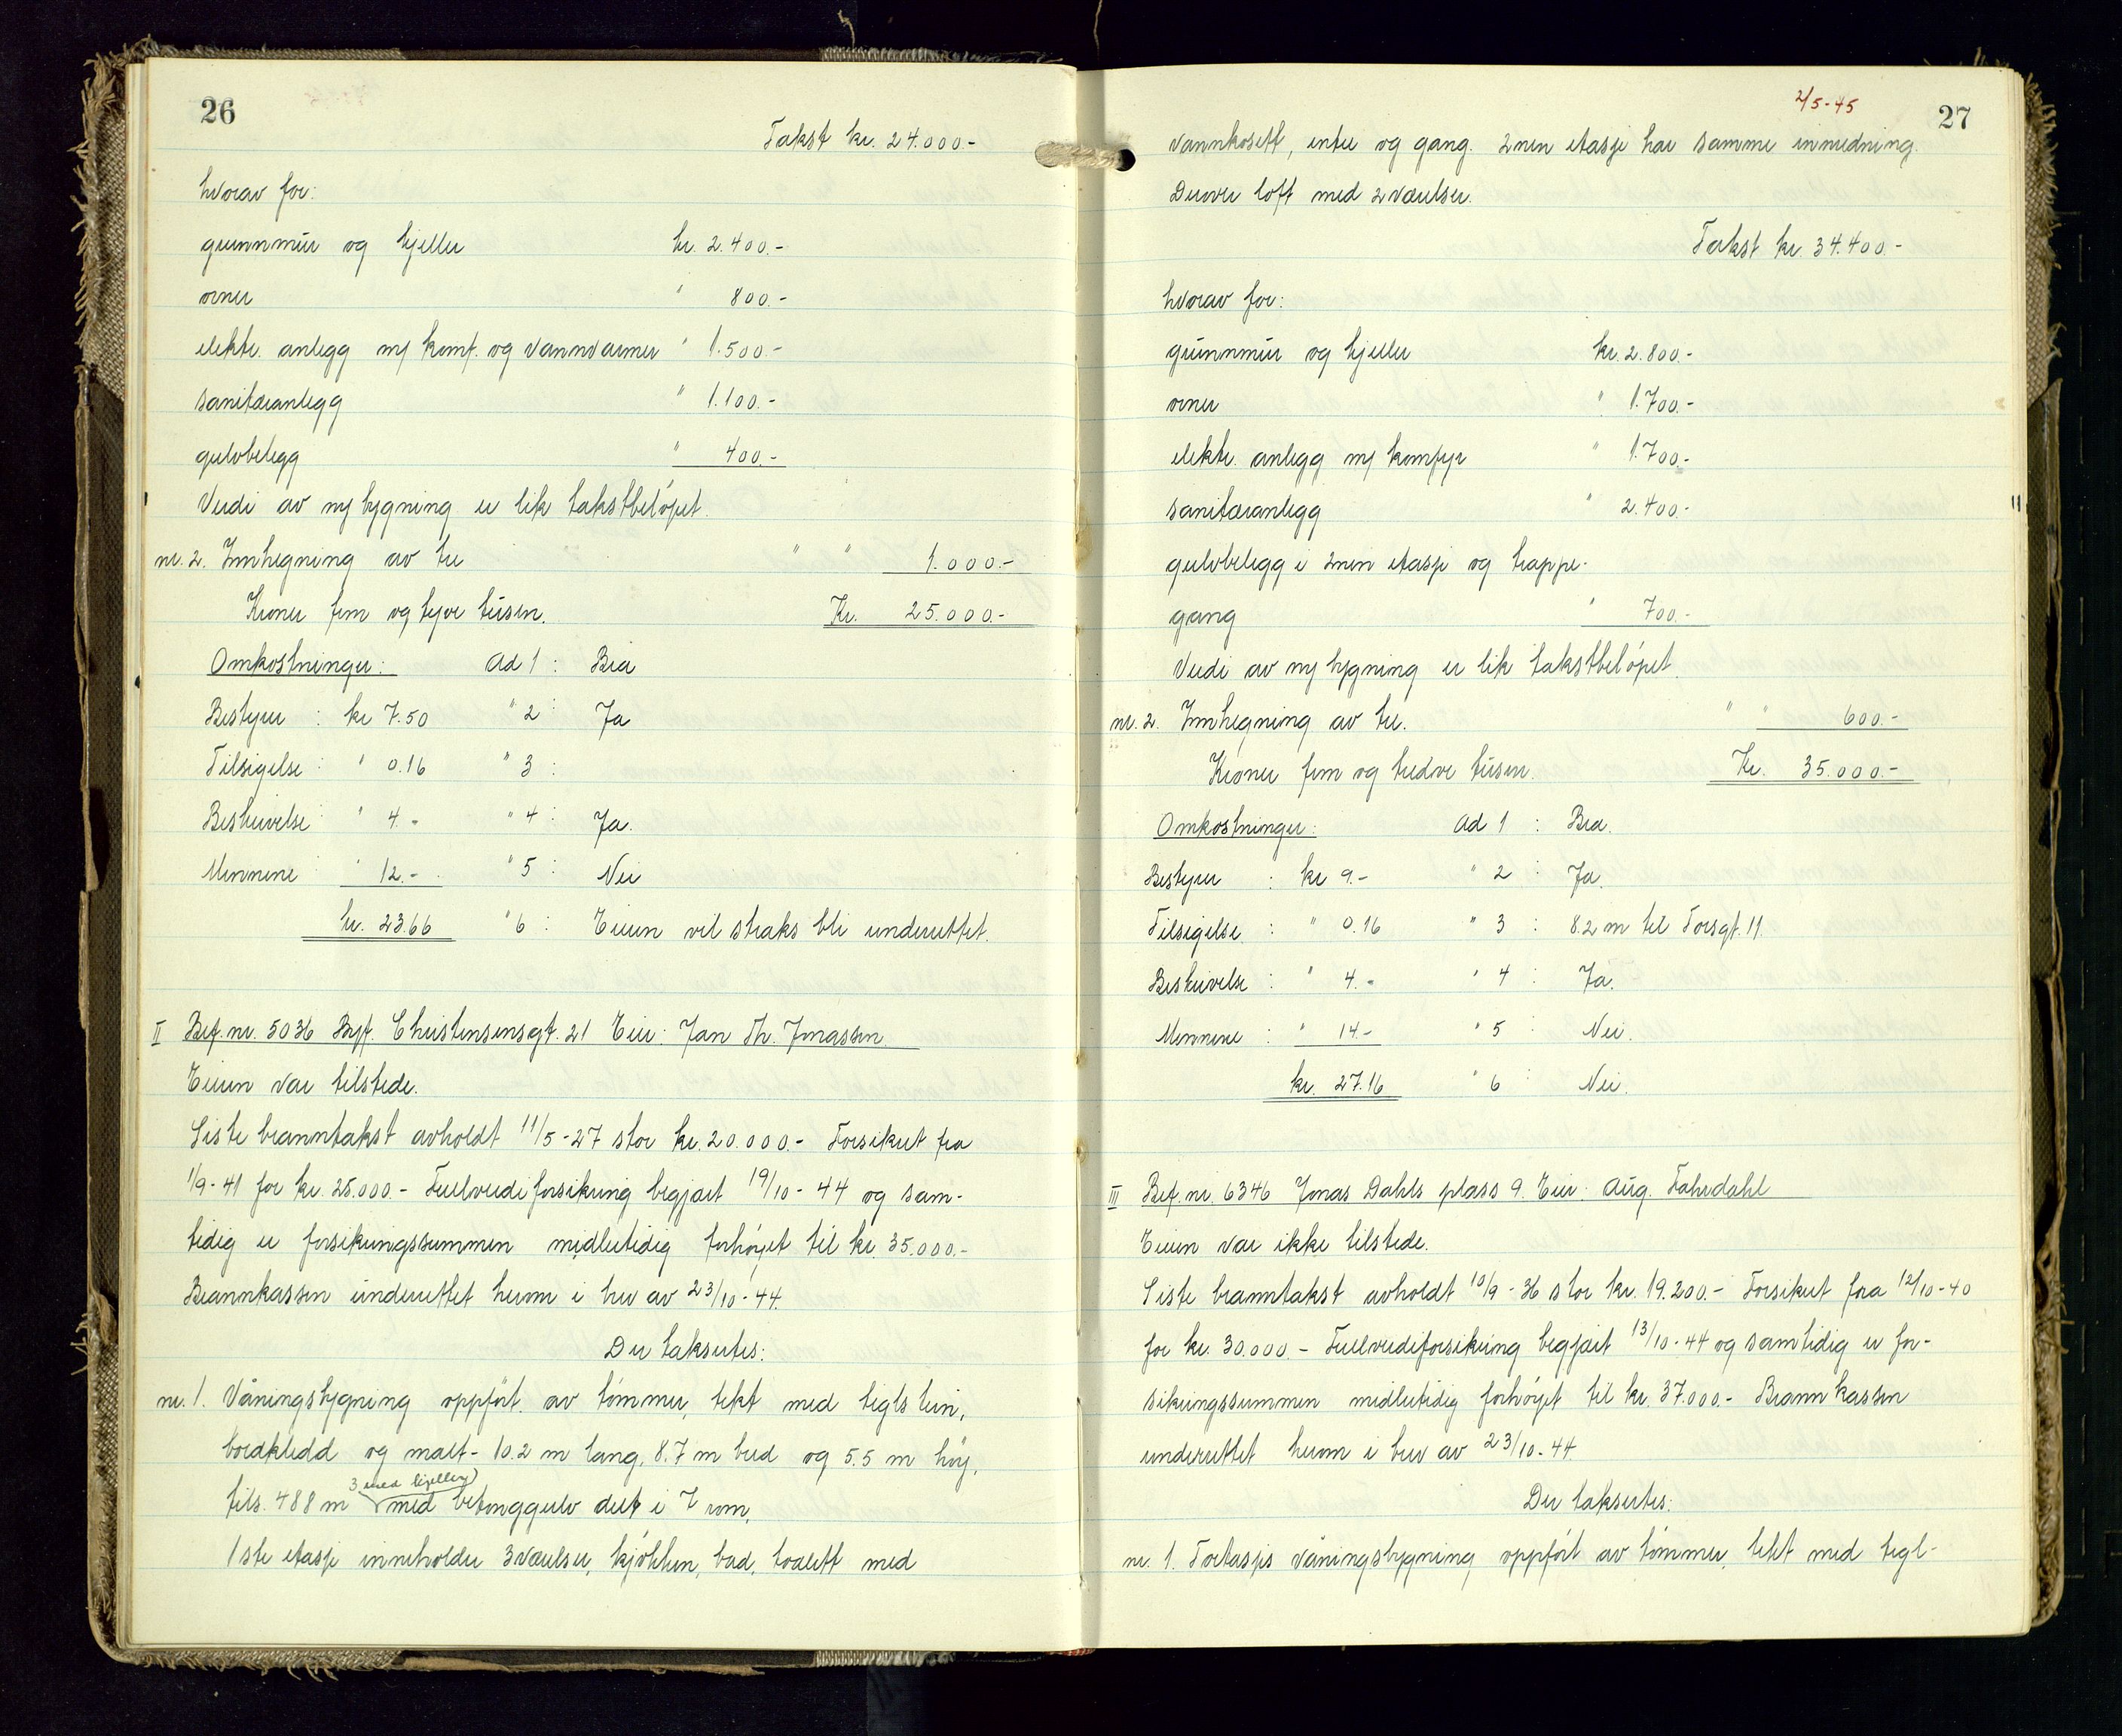 26
Takst kr. 24.000.-
hvorav for:
grunnmur og kjeller kr. 2.400.-
ovner " 800.-
elektr. anlegg m/ komf. og vannvarmer " 1.500.-
sanitæranlegg " 1.100.-
gulvbelegg " 400.-
Verdi av ny bygning er lik takstbeløpet.
nr. 2. Innhegning av tre " " 1.000.-
Kroner fem og tyve tusen. Kr. 25.000.-
Omkostninger: Ad 1 : Bra
Bestyrer : kr 7.50 " 2 : Ja
Tilsigelse : " 0.16 " 3 :
Beskrivelse " 4.- " 4 : Ja.
Mennene " 12.- " 5 : Nei
kr. 23.66 " 6 : Eieren vil straks bli underrettet.
II Bef. nr. 5036 Byf. Christensensgt. 21 Eier: Jan Th. Jonassen.
Eieren var tilstede.
Siste branntakst avholdt 11/5-27 stor kr. 20.000.- Forsikret fra
1/9-41 for kr. 25.000.- Fullverdiforsikring begjært 19/10-44 og sam-
tidig er forsikringssummen midlertidig forhøyet til kr. 35.000.-
Brannkassen underrettet herom i brev av 23/10-44.
Der takseres:
nr. 1. Våningsbygning oppført av tømmer, tekt med teglstein,
bordkledd og malt - 10.2 m lang, 8.7 m bred og 5.5 m høy,
tils. 488 m3 med kjeller med betonggulv delt i 7 rom,
1ste etasje inneholder 3 værelser, kjøkken, bad, toalett med
2/5-45
27
vannkosett, entre og gang. 2nen etasje har samme innredning.
Derover loft med 2 værelser.
Takst kr. 34.400.-
hvorav for:
grunnmur og kjeller kr. 2.800.-
ovner " 1.700.-
elektr. anlegg m/ komfyr " 1.700.-
sanitæranlegg " 2.400.-
gulvbelegg i 2nen etasje og trappe-
gang " 700.-
Verdi av ny bygning er lik takstbeløpet.
nr. 2. Innhegning av tre. " " 600.-
Kroner fem og tredve tusen. Kr. 35.000.-
Omkostninger: Ad 1 : Bra.
Bestyrer : kr 9.- " 2 : Ja.
Tilsigelse : " 0.16 " 3 : 8.2 m til Torsgt. 11.
Beskrivelse : " 4.- " 4 : Ja.
Mennene : " 14.- " 5 : Nei.
kr. 27.16 " 6 : Nei.
III Bef. nr. 6346 Jonas Dahls plass 9. Eier: Aug. Fahrdahl
Eieren var ikke tilstede.
Siste branntakst avholdt 10/9-36 stor kr. 19.200.- Forsikret fra 12/10-40
for kr. 30.000.- Fullverdiforsikring begjært 13/10-44 og samtidig er for-
sikringssummen midlertidig forhøyet til kr. 37.000.- Brannkassen
underrettet herom i brev av 23/10-44.
Der takseres:
nr. 1. Toetasjes våningsbygning oppført av tømmer, tekt med tegl-